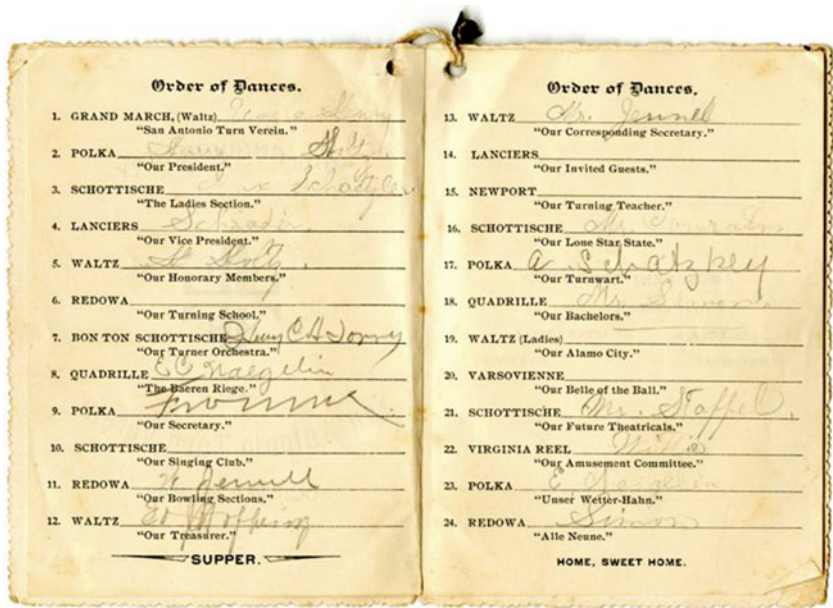 Order of Dances.
1. GRAND MARCH, (Waltz)
"San Antonio Turn Verein."
2. POLKA Holtz
"Our President."
3. SCHOTTISCHE
"The Ladies Section."
4. LANCIERS Schrader
"Our Vice President."
5. WALTZ Holtz
"Our Honorary Members."
6. REDOWA
"Our Turning School."
7. BON TON SCHOTTISCHE
"Our Turner Orchestra."
8. QUADRILLE E C Naegelin
"The Baeren Riege."
9. POLKA
"Our Secretary."
10. SCHOTTISCHE
"Our Singing Club."
11. REDOWA
"Our Bowling Sections."
12. WALTZ
"Our Treasurer."
SUPPER.
Order of Dances.
13. WALTZ Mr.
"Our Corresponding Secretary."
14. LANCIERS
"Our Invited Guests."
15. NEWPORT
"Our Turning Teacher."
16. SCHOTTISCHE Mr.
"Our Lone Star State."
17. POLKA A Schatzkey
"Our Turnwart."
18. QUADRILLE Mr. Simon
"Our Bachelors."
19. WALTZ (Ladies)
"Our Alamo City."
20. VARSOVIENNE
"Our Belle of the Ball."
21. SCHOTTISCHE Mr. Staffel.
"Our Future Theatricals."
22. VIRGINIA REEL
"Our Amusement Committee."
23. POLKA E
"Unser Wetter-Hahn."
24. REDOWA Simon
"Alle Neune."
HOME, SWEET HOME.